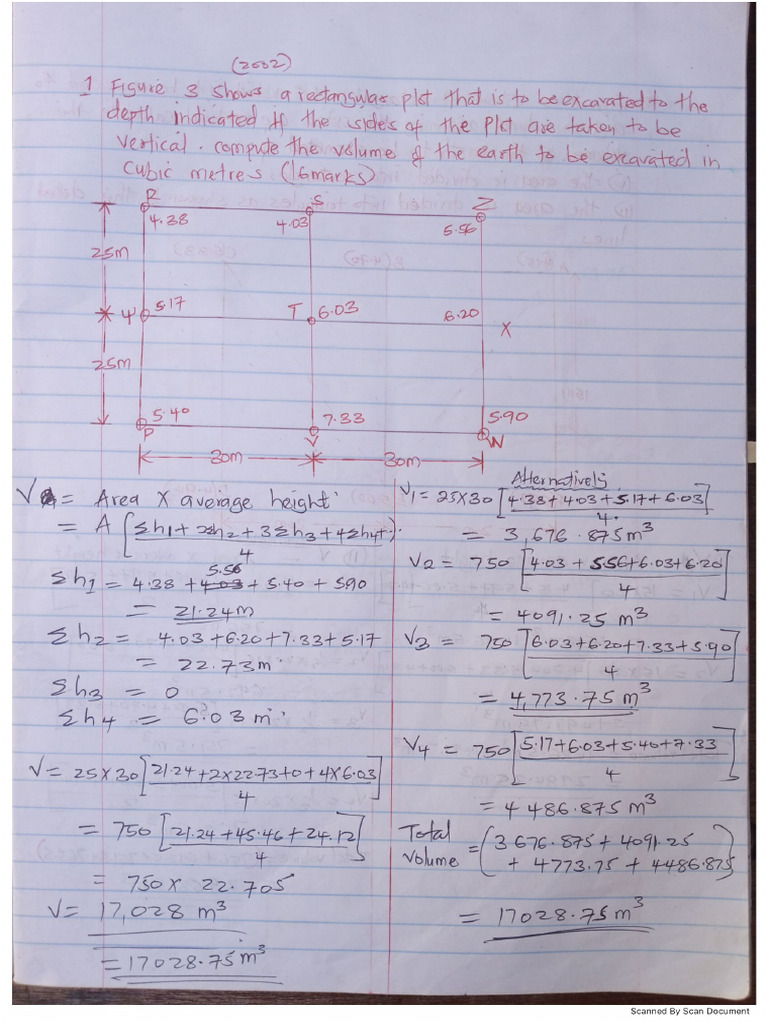 (2002)
1 Figure 3 shows a rectangular plot that is to be excavated to the
depth indicated if the sides of the plot are taken to be
vertical. compute the volume of the earth to be excavated in
cubic metres (16marks)
R S Z
4.38 4.03 5.56
25m
Y 5.17 T 6.03 6.20 X
25m
5.40 7.33 5.90
P V W
30m 30m
V = Area X average height
= A [Σh1 + 2Σh2 + 3Σh3 + 4Σh4]
4
5.56
Σh1 = 4.38 + 4.03 + 5.40 + 5.90
= 21.24m
Σh2 = 4.03+6.20+7.33+5.17
= 22.73m
Σh3 = 0
Σh4 = 6.03 m
V = 25 x 30 [21.24 + 2 x 22.73 + 0 + 4 x 6.03]
4
= 750 [21.24 + 45.46 + 24.12]
4
= 750 x 22.705
V = 17,028 m³
= 17028.75 m³
Alternatively
V1 = 25 x 30 [4.38 + 4.03 + 5.17 + 6.03]
4
= 3,676.875 m³
V2 = 750 [4.03 + 5.56 + 6.03 + 6.20]
4
= 4091.25 m³
V3 = 750 [6.03 + 6.20 + 7.33 + 5.90]
4
= 4,773.75 m³
V4 = 750 [5.17 + 6.03 + 5.40 + 7.33]
4
= 4486.875 m³
Total volume = (3676.875 + 4091.25
+ 4773.75 + 4486.875)
= 17028.75 m³
Scanned By Scan Document